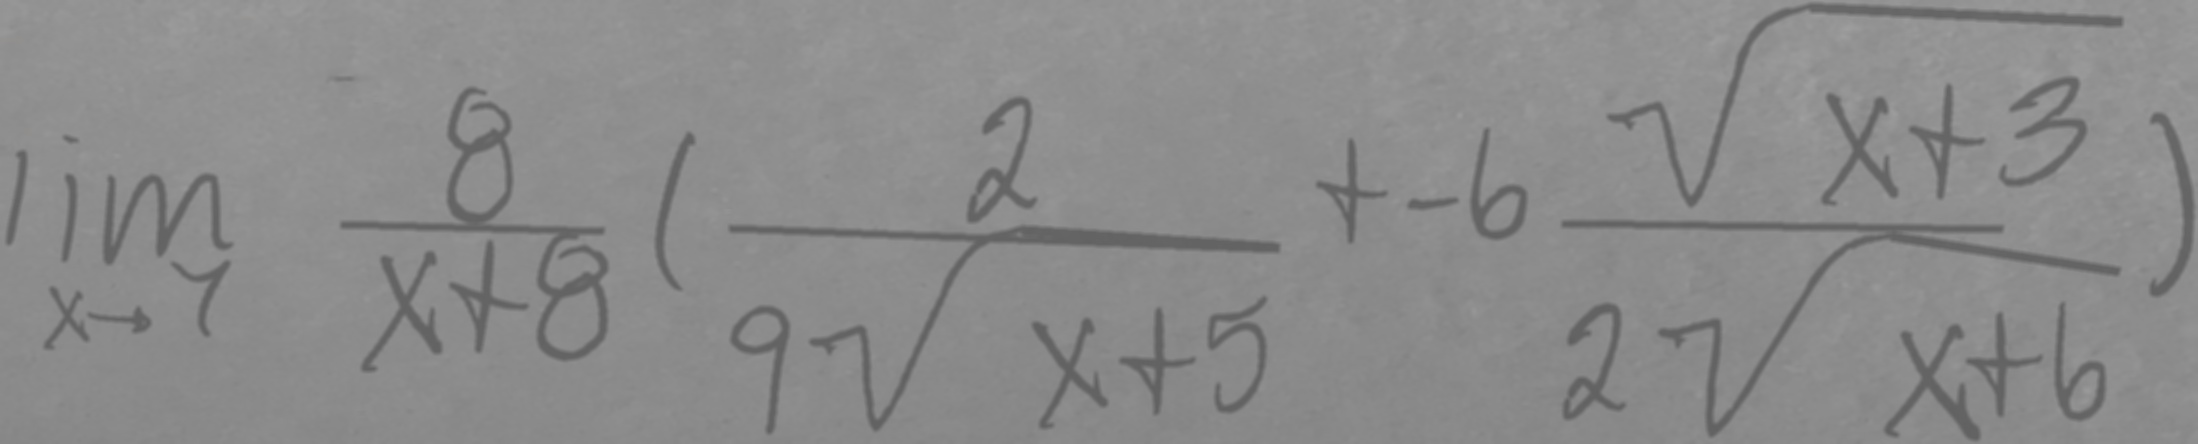 \lim_{x \to 7} \frac{8}{x+8} \left( \frac{2}{9\sqrt{x+5}} + -6 \frac{\sqrt{x+3}}{2\sqrt{x+6}} \right)